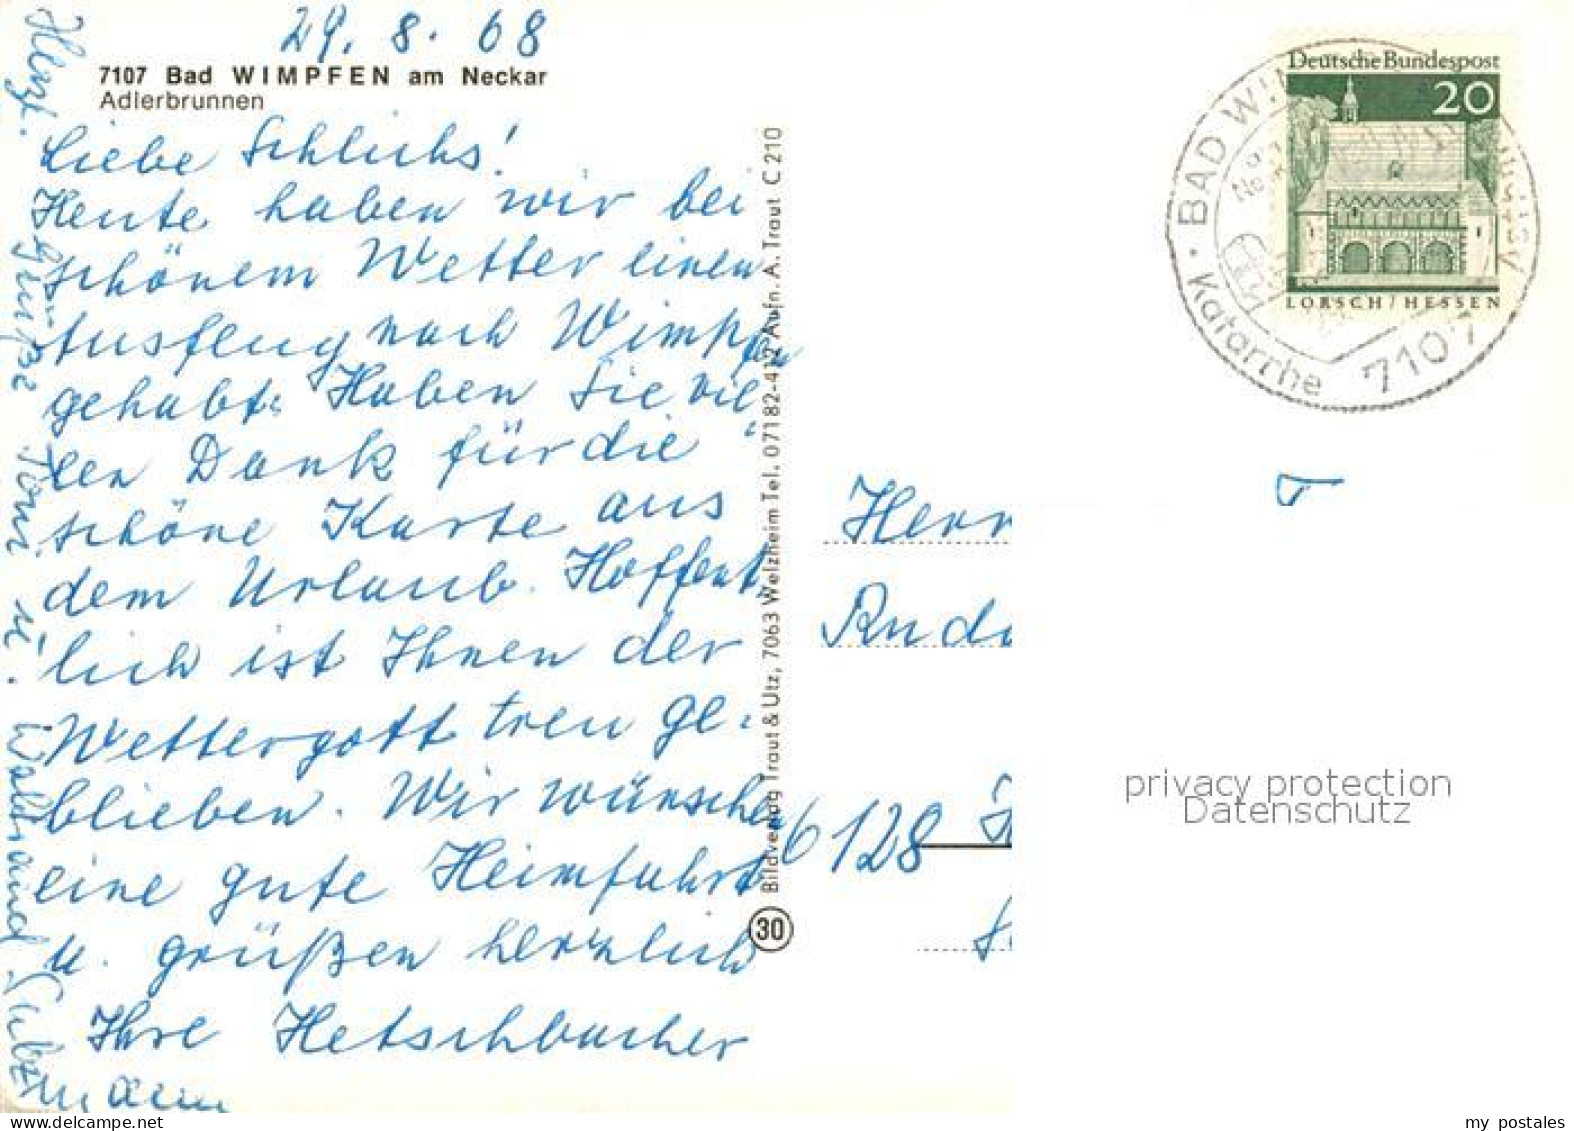 29. 8. 68
7107 Bad WIMPFEN am Neckar
Adlerbrunnen
Liebe Schlichs!
Heute haben wir bei
schönem Wetter einen
Ausflug nach Wimpfen
gehabt. Haben Sie vie-
len Dank für die
schöne Karte aus
dem Urlaub. Hoffent-
lich ist Ihnen der
Wettergott treu ge-
blieben. Wir wünschen
eine gute Heimfahrt
u. grüßen herzlich
Ihre Hetschbacher
Herzl. Grüße Toni u.
Bildverlag Traut & Utz, 7063 Welzheim Tel. 07182-412 Aufn. A. Traut C 210
30
Deutsche Bundespost
20
LORSCH/HESSEN
BAD WIM
Katarrhe 7107
Herr
Rud
6128
privacy protection
Datenschutz
my postales